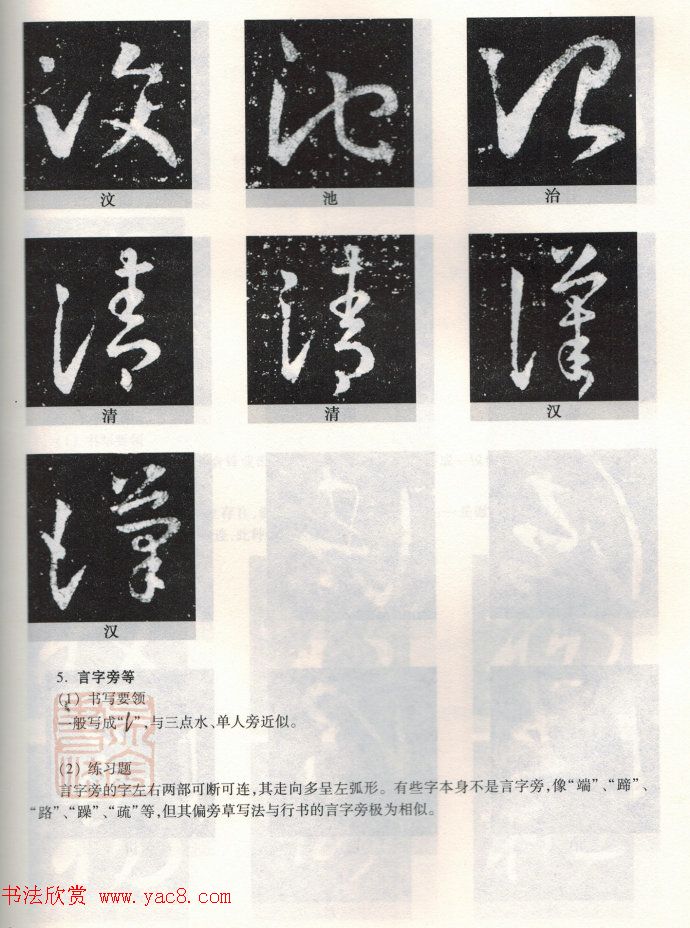 汶 池 治
清 清 汉
汉
5. 言字旁等
(1) 书写要领
一般写成“讠”,与三点水、单人旁近似。
(2) 练习题
言字旁的字左右两部可断可连,其走向多呈左弧形。有些字本身不是言字旁,像“端”、“蹄”、
“路”、“躁”、“疏”等,但其偏旁草写法与行书的言字旁极为相似。
书法欣赏 www.yac8.com